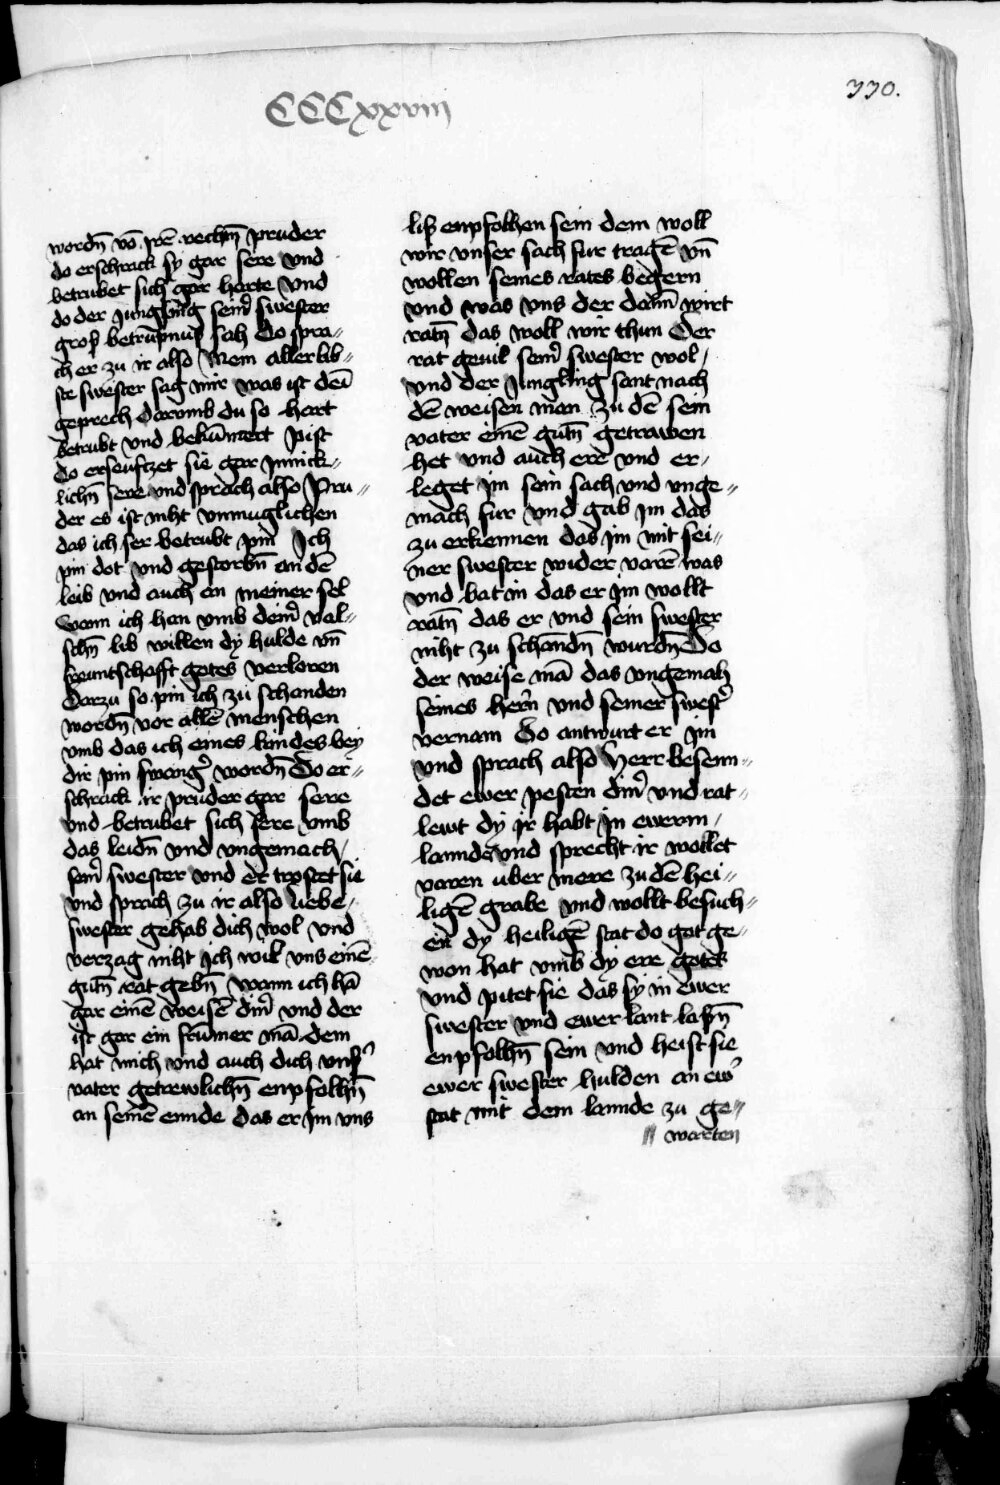 CCCxxviij
330.
wordn̄ vō irē rechtn̄ pruder
do erschrack sy gar sere vnd
betrubet sich gar harte vnd
do der jungling seinˀ swester
groß betrupnuß sah Do spra⸗
ch er zu ir also Mein allerlib⸗
ste swester sag mir was ist dei᷑
geprech Darumb du so hart
betrubt vnd bekūmert pist
do erseuftzet sie gar jnnick⸗
lichn̄ sere vnd sprach also Pru⸗
der es ist niht vnmuglichen
das ich ser betrubt pin Ich
pin dot vnd gestorbn̄ an dē
leib vnd auch an meiner sel
wann ich han vmb deinˀ val⸗
schn̄ lib willen dy hulde vn̄
freuntschafft gotes verloren
Darzu so pin ich zu schanden
wordn̄ vor allē menschen
vmb das ich eines kindes bey
dir pin swangˀ wordn̄ Do er⸗
schrack ir pruder gar sere
vnd betrubet sich sere vmb
das leidn̄ vnd vngemach
seinˀ swester vnd er trostet sie
vnd sprach zu ir also liebe
swester gehab dich wol vnd
verzag niht Ich wil vns einē
gutn̄ rat gebn̄ wann ich hā
gar einē weisē dinˀ vnd der
ist gar ein frūmer mā dem
hat mich vnd auch dich vnsˀ
vater getrewlichn̄ enpfolhn̄
an seinē ennde das er im vns
liß enpfolhen sein dem woll
wir vnser sach fur tragē vn̄
wollen seines rates begern
vnd was vns der dann wirt
ratn̄ das woll wir thun Der
rat geuil seinˀ swester wol
vnd der Jungling sant nach
dē weisen man zu dē sein
vater einē gutn̄ getrawen
het vnd auch ere vnd er⸗
leget im sein sach vnd vnge⸗
mach fur vnd gab im das
zu erkennen das im mit sei⸗
ner swester wider varē was
vnd bat in das er im wollt
ratn̄ das er vnd sein swester
niht zu schandn̄ wurdn̄ Do
der weise mā das vngemah
seines hern̄ vnd seiner swestˀ
vernam Do antwurt er im
vnd sprach also Herr besenn⸗
det ewer pesten dinˀ vnd rat⸗
lewt dy ir habt in ewerm
lannde vnd sprecht ir wollet
varen uber mere zu dē hei⸗
ligē grabe vnd wollt besuch⸗
en dy heiligē stat do got ge⸗
won hat vmb dy ere gotes
vnd pitet sie das sy in ewer
swester vnd ewer lant laßn̄
enpfolhn̄ sein vnd heist sie
ewer swester hulden an ewˀ
stat mit dem lannde zu ge⸗
warten